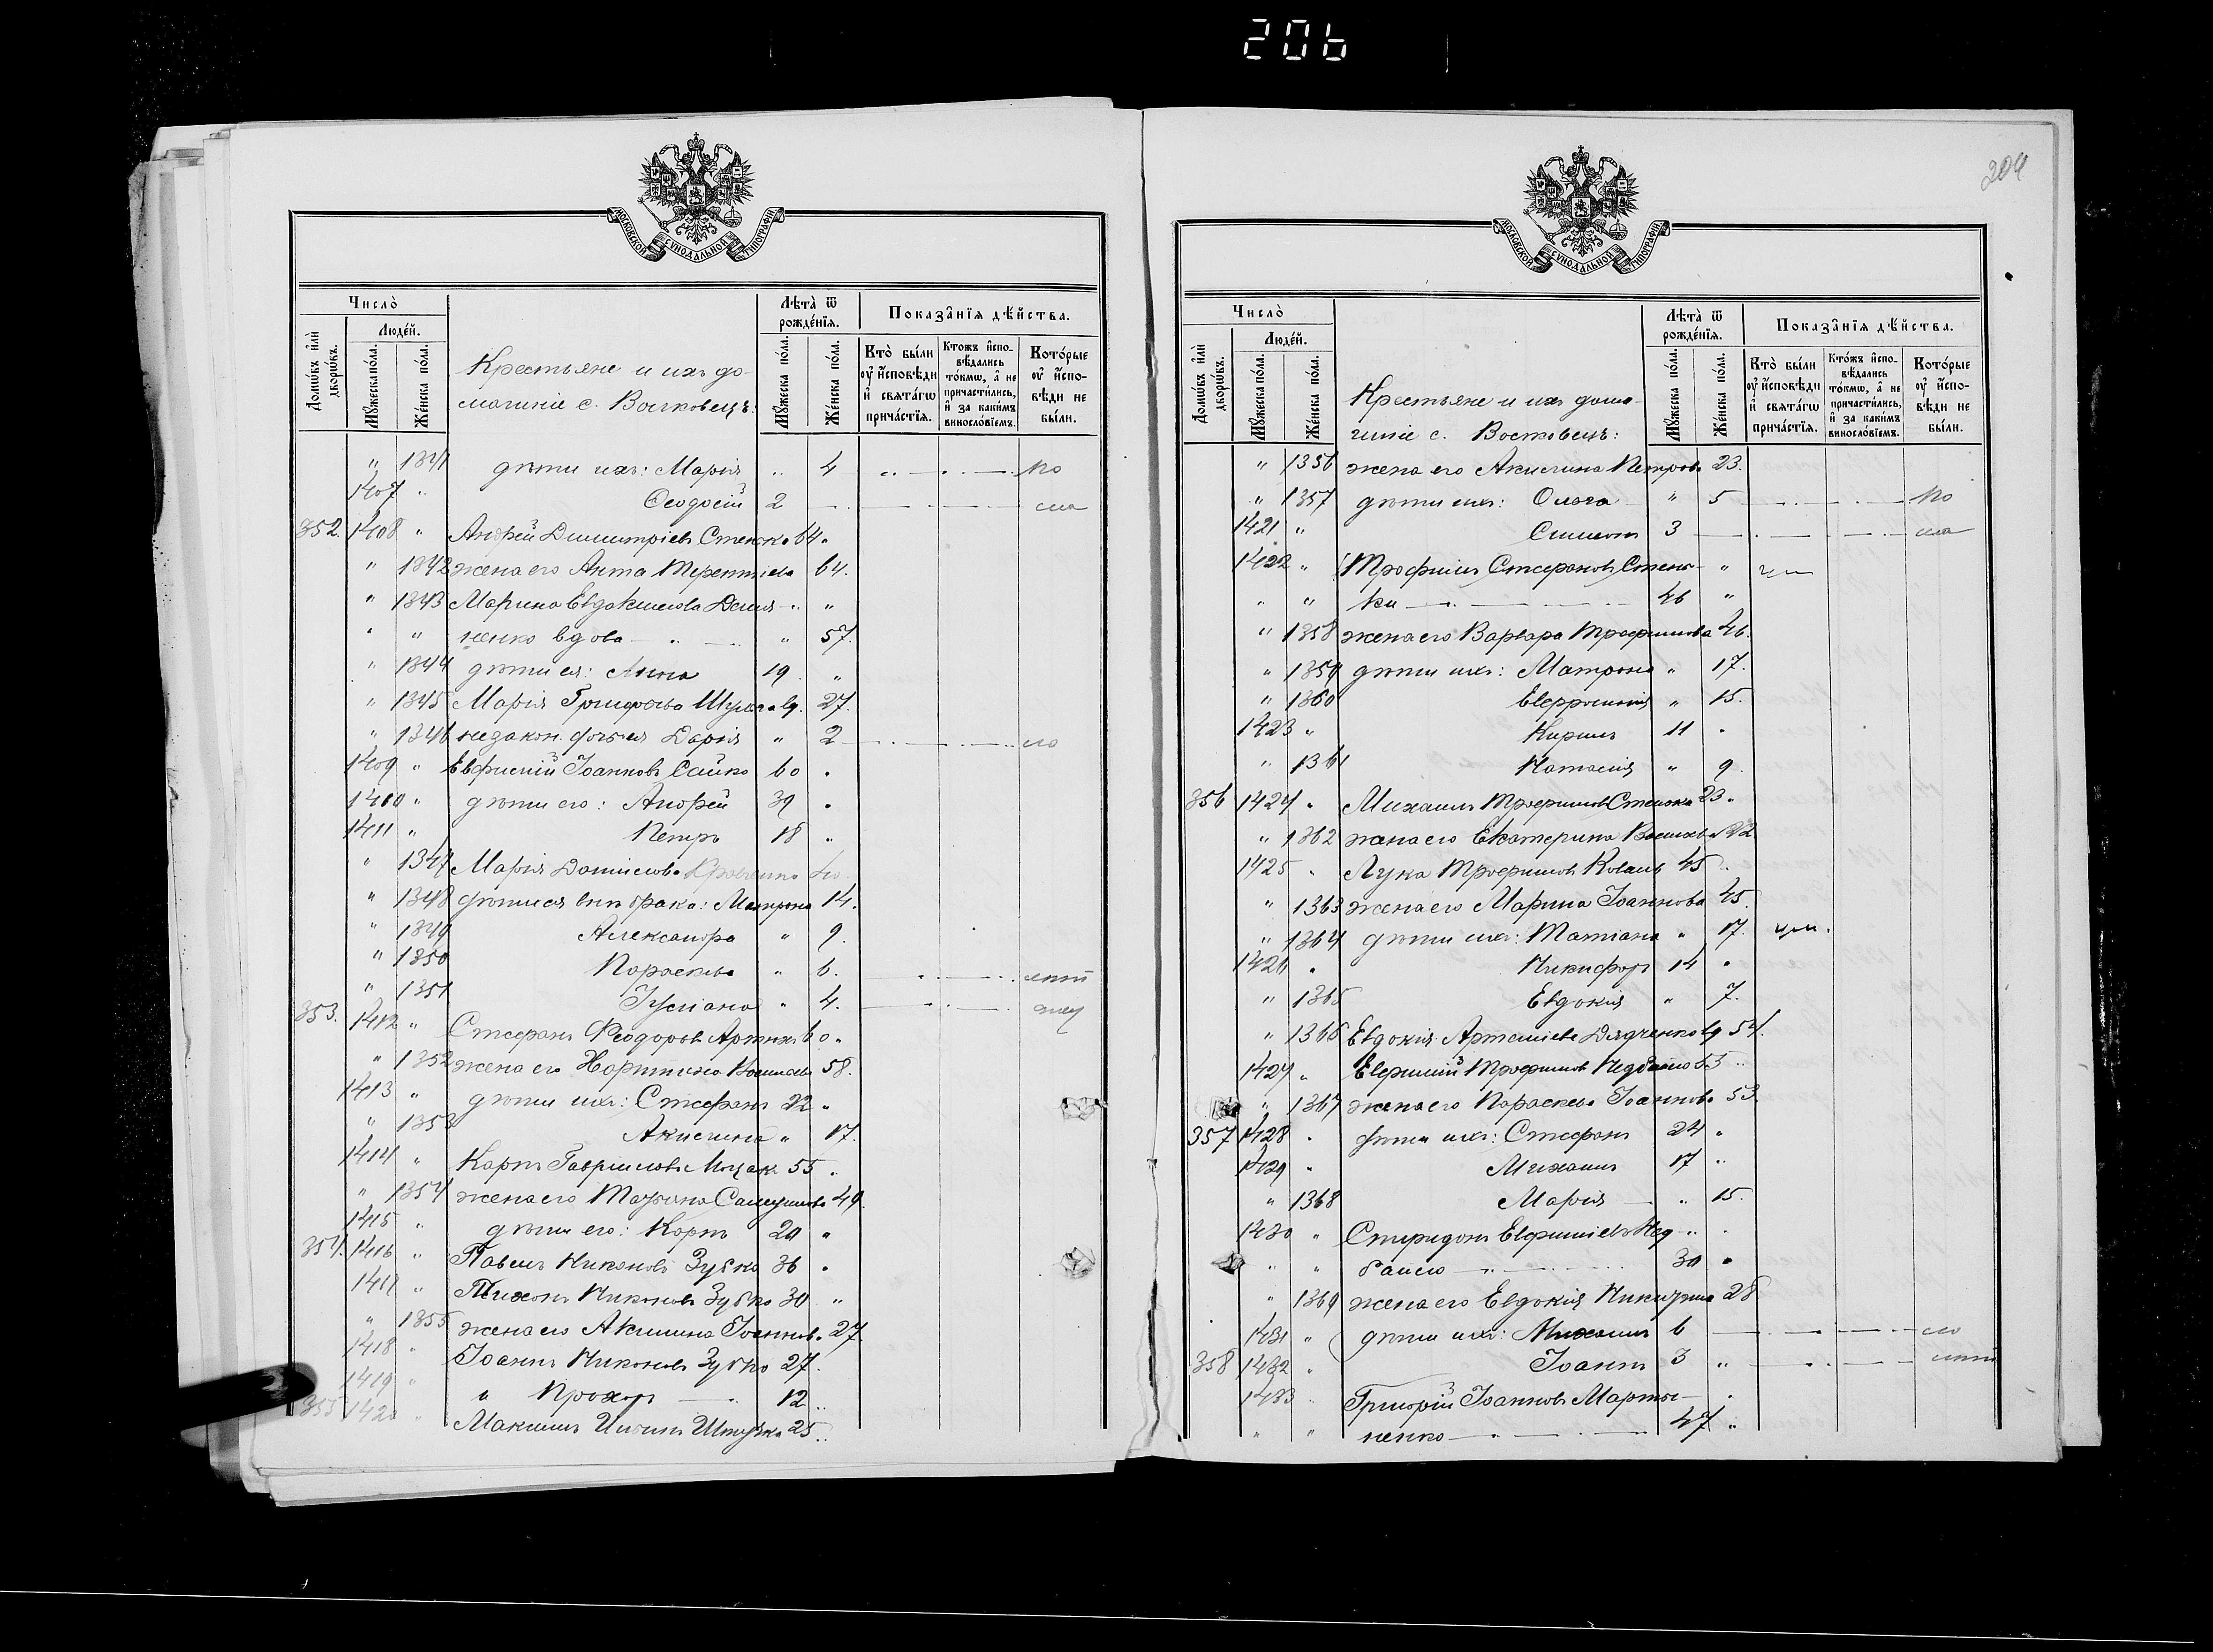 206
204
МОСКОВСКОЙ СѴНОДАЛЬНОЙ ТИПОГРАФІИ
Число̀
Домѡ́въ и҆лѝ дворѡ́въ.
Люде́й.
Мꙋ́жеска по́ла.
Же́нска по́ла.
Крестьяне и ихъ до-
машніе с.
Лѣта̀ ѿ рожде́нїѧ.
Мꙋ́жеска по́ла.
Же́нска по́ла.
Показа̑нїѧ дѣ́йства.
Кто̀ бы́ли оу҆ и҆́сповѣди и҆ свѧта́гѡ прича́стїѧ.
Кто́жъ и҆спо-вѣ́дались то́кмѡ, а҆ не причасти́лись, и҆ за каки́мъ винословїемъ.
Кото́рые оу҆ и҆́спо-вѣди не бы́ли.
" 1341 дѣти ихъ: Марія .. 4 по
1407 " Ѳеодосій 2 ма
352. 1408 " Андрей Димитріевъ Стенька 64 "
" 1342 жена его Анна Терентіева 64.
" 1343 Марина Евдокимова
ненко вдова " 57.
" 1344 дѣти ея: Анна 19 "
" 1345 Марія вд. 27
" 1346 незакон. дочь ея Дарія " 2
1409 " Евфимій Іоанновъ Сайко 60 "
1410 " дѣти его: Андрей 39 "
1411 " Петръ 18 "
" 1347 Марія Даниилова
" 1348 дѣти ея внѣ брака: Матрона 14.
" 1349 Александра " 9.
" 1350 Параскева " 6. лѣт
" 1351 Іуліана " 4.
353. 1412 " Стефанъ Ѳеодоровъ 60 "
" 1352 жена его 58.
1413 " дѣти ихъ: Стефанъ 22 "
" 1353 Акилина " 17.
1414 " Карпъ Гавриловъ 55 "
" 1354 жена его Татіана 49.
1415 " дѣти его: Карпъ 20 "
354. 1416 " Павелъ Никоновъ Зубко 36 "
1417 " Тихонъ Никоновъ Зубко 30 "
" 1355 жена его Акилина Іоаннова 27
1418 " Іоаннъ Никоновъ Зубко 27.
1419 " " Прохоръ 12 "
355 1420 " Максимъ 25
МОСКОВСКОЙ СѴНОДАЛЬНОЙ ТИПОГРАФІИ
Число̀
Домѡ́въ и҆лѝ дворѡ́въ.
Люде́й.
Мꙋ́жеска по́ла.
Же́нска по́ла.
Крестьяне и ихъ дома-
шніе с.
Лѣта̀ ѿ рожде́нїѧ.
Мꙋ́жеска по́ла.
Же́нска по́ла.
Показа̑нїѧ дѣ́йства.
Кто̀ бы́ли оу҆ и҆́сповѣди и҆ свѧта́гѡ прича́стїѧ.
Кто́жъ и҆спо-вѣ́дались то́кмѡ, а҆ не причасти́лись, и҆ за каки́мъ винословїемъ.
Кото́рые оу҆ и҆́спо-вѣди не бы́ли.
" 1356 жена его Акилина Петрова 23.
" 1357 дѣти ихъ: Ольга " 5 по
1421 " Симеонъ 3 ма
1422 " Трофимъ Стефановъ Стень-
" " ка 46 "
" 1358 жена его Варвара Трофимова 46.
" 1359 дѣти ихъ: Матрона " 17.
" 1360 Евфросинія " 15.
1423 " Кириллъ 11 "
" 1361 Наталія " 9.
356 1424 " Михаилъ Трофимовъ Стенька 23 "
" 1362 жена его Екатерина 22
1425 " Лука Трофимовъ Коваль 45
" 1363 жена его Марина Іоаннова 45.
" 1364 дѣти ихъ: Татіана " 17.
1426 " Никифоръ 14 "
" 1365 Евдокія " 7.
" 1366 Евдокія Артеміева Дядченко вд 54.
1427 " Евфимій Трофимовъ Недбайло 55
" 1367 жена его Параскева Іоаннова 53.
357 1428 " дѣти ихъ: Стефанъ 24 "
1429 " Михаилъ 17 "
" 1368 Марія " 15.
1430 " Спиридонъ Евфиміевъ Нед-
" " байло 30 "
" 1369 жена его Евдокія 28
1431 " дѣти ихъ: Михаилъ 6
358 1432 " Іоаннъ 3 "
1433 " Григорій Іоанновъ Марты-
" " ненко 47 "